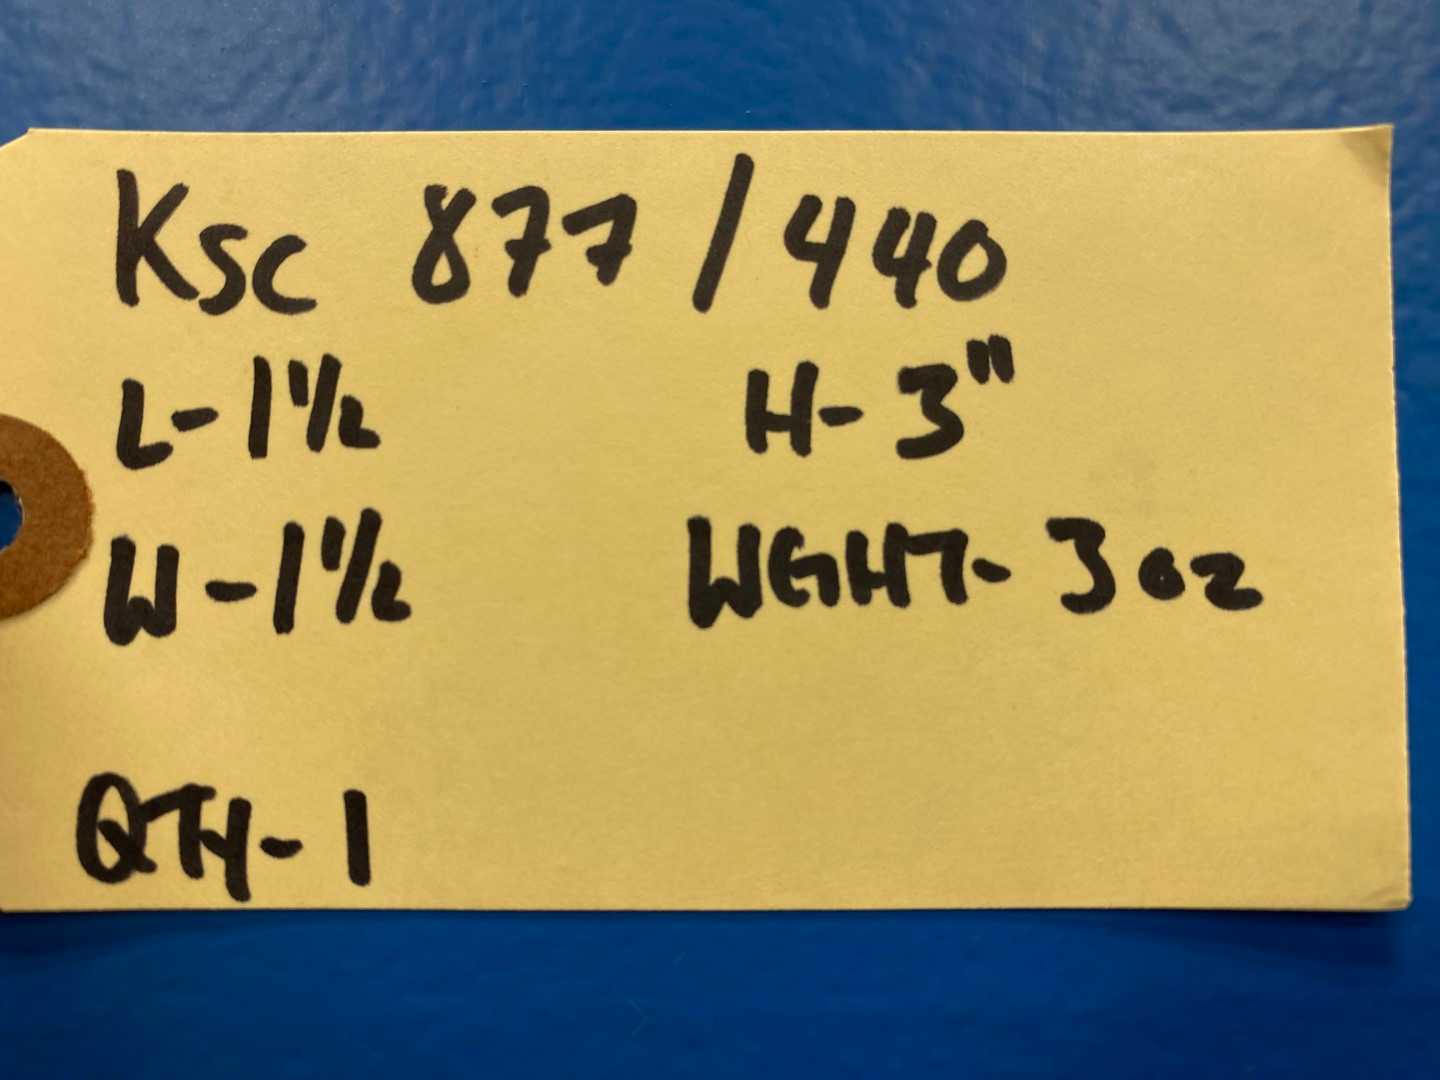 KSC 877/440
L-1 1/2 H-3"
W-1 1/2 WGHT-3oz
QTY-1